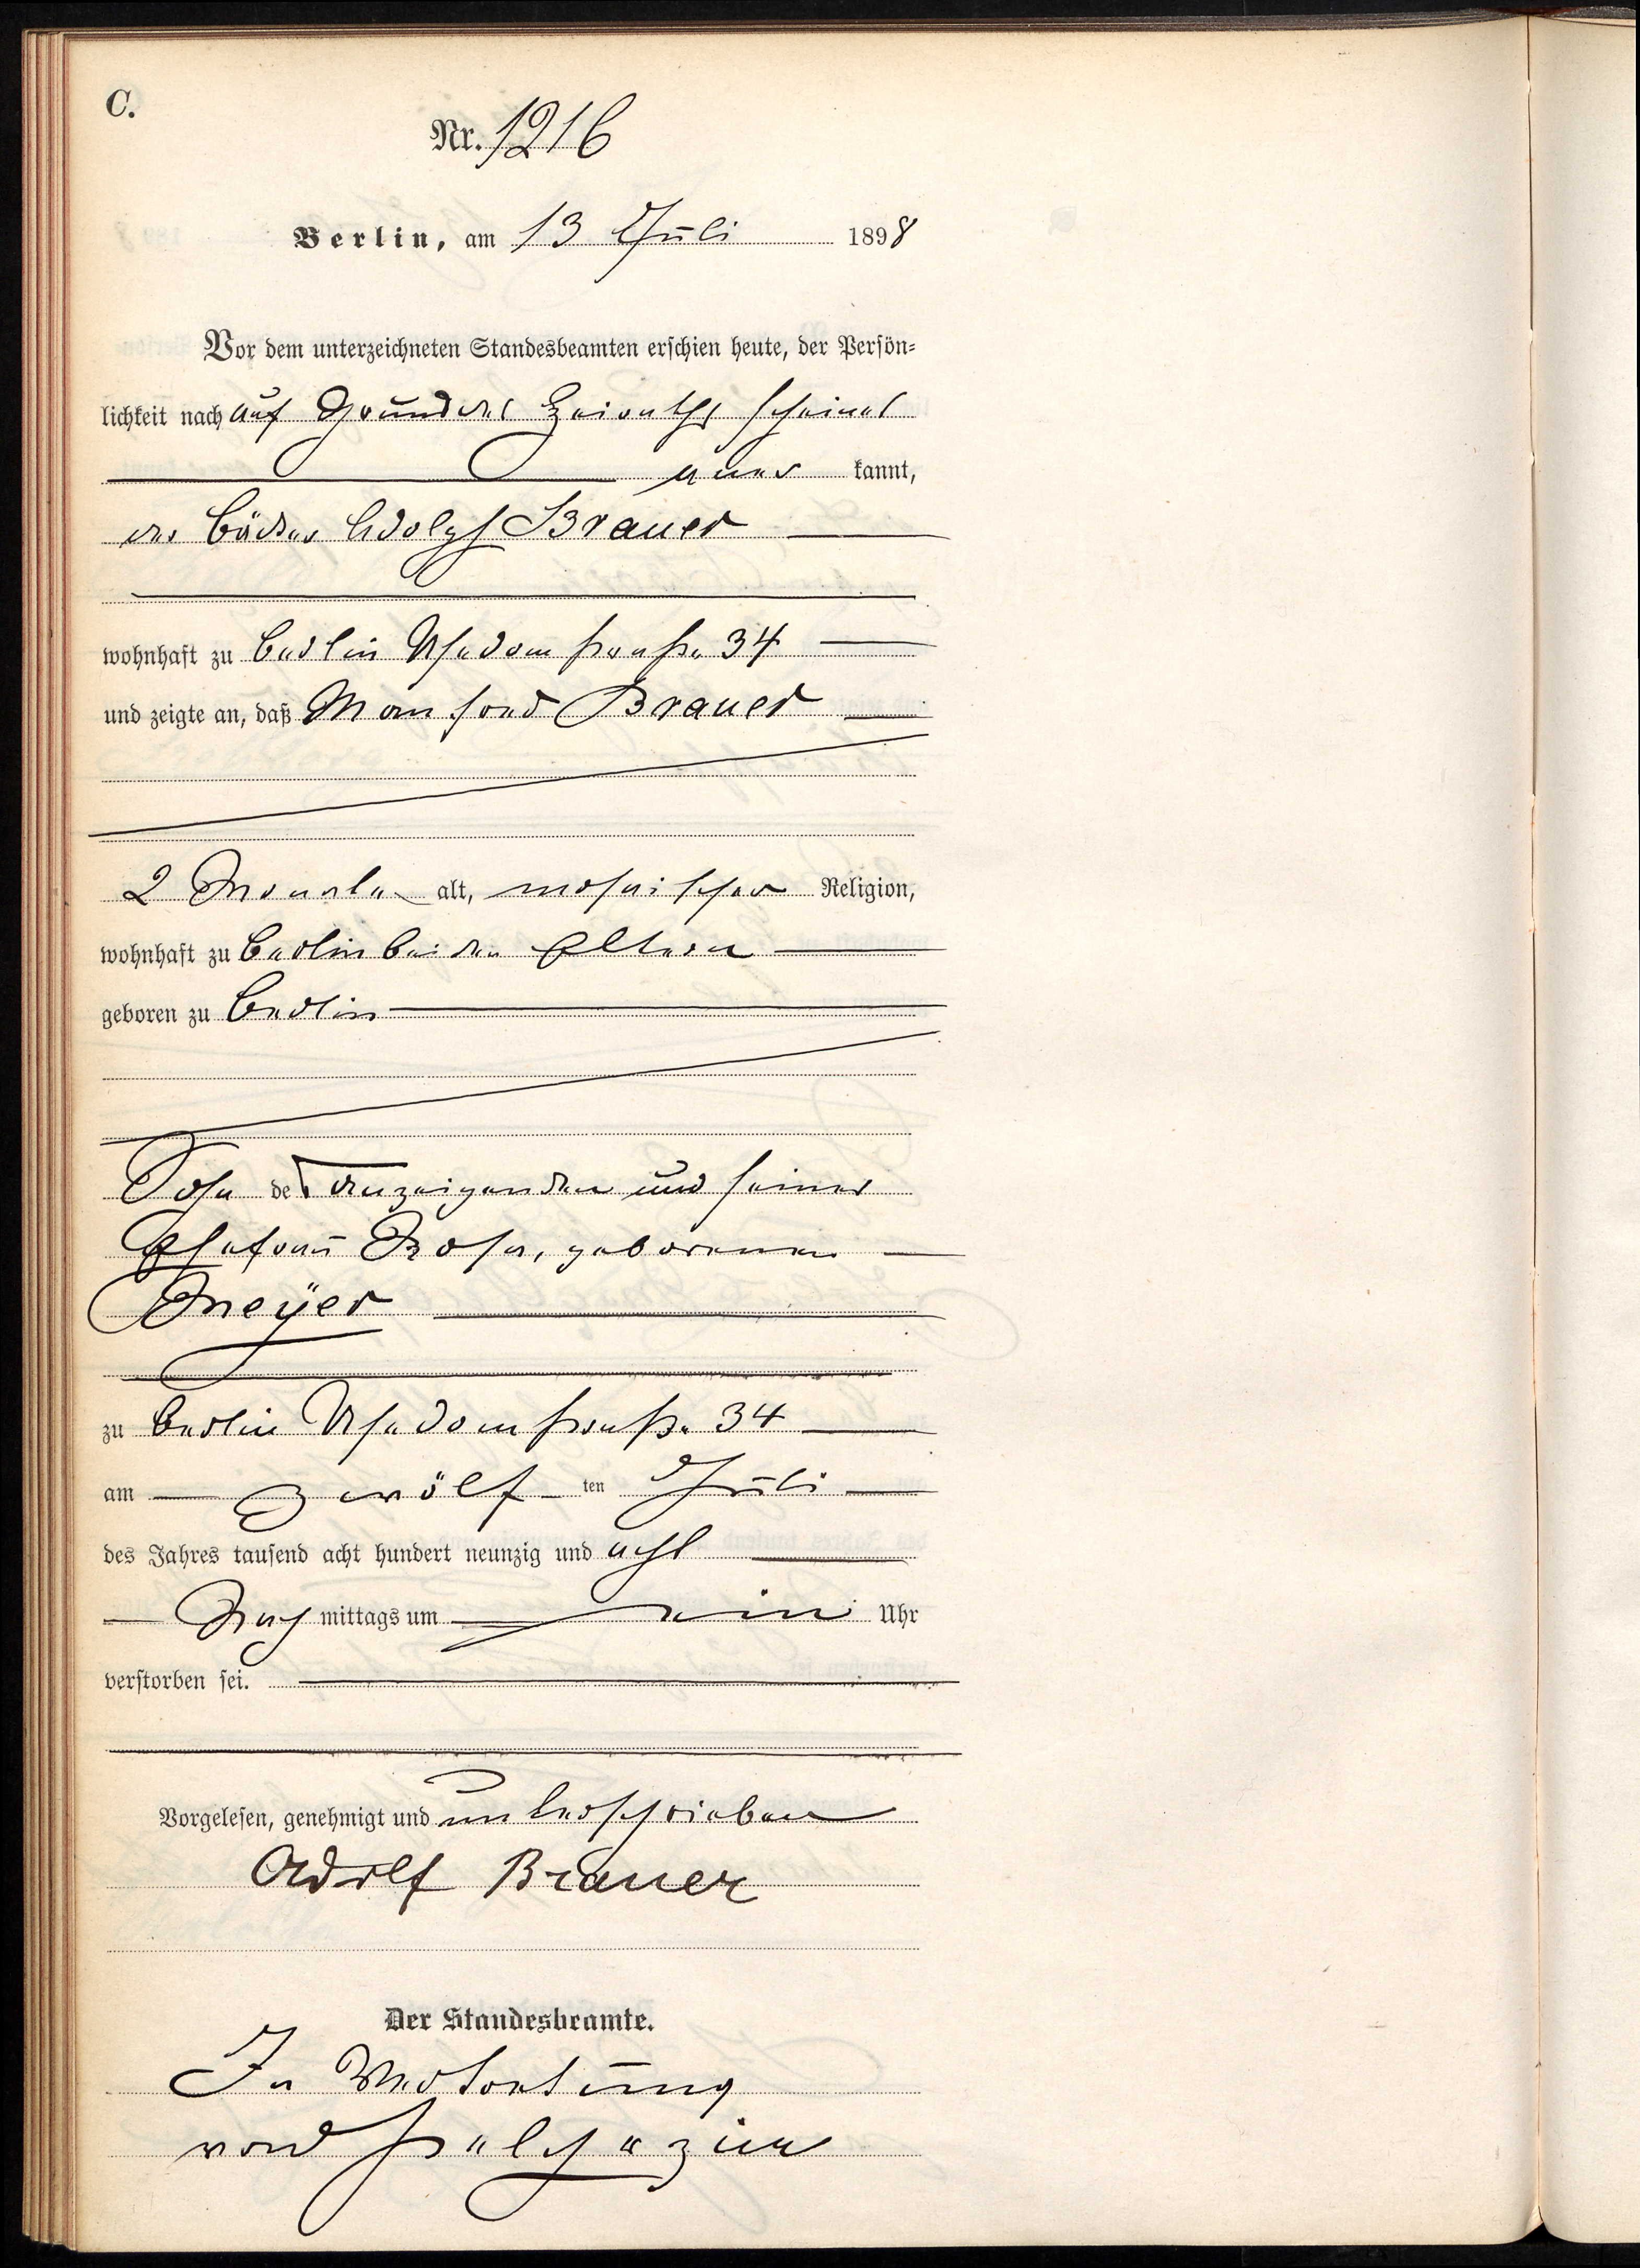 C.
Nr. 1216
Berlin, am 13 Juli 1898
Vor dem unterzeichneten Standesbeamten erschien heute, der Persön-
lichkeit nach auf Grund des Heiraths scheines
aner kannt,
der Bäcker Adolph Brauer
wohnhaft zu Berlin Usedomstraße 34
und zeigte an, daß Manfred Brauer
2 Monate alt, mosaischer Religion,
wohnhaft zu Berlin bei den Eltern
geboren zu Berlin
Sohn des Anzeigenden und seiner
Ehefrau Rosa, geborenen
Meyer
zu Berlin Usedomstraße 34
am zwölf ten Juli
des Jahres tausend acht hundert neunzig und acht
Nach mittags um ein Uhr
verstorben sei.
Vorgelesen, genehmigt und unterschrieben
Adolf Brauer
Der Standesbeamte.
In Vertretung